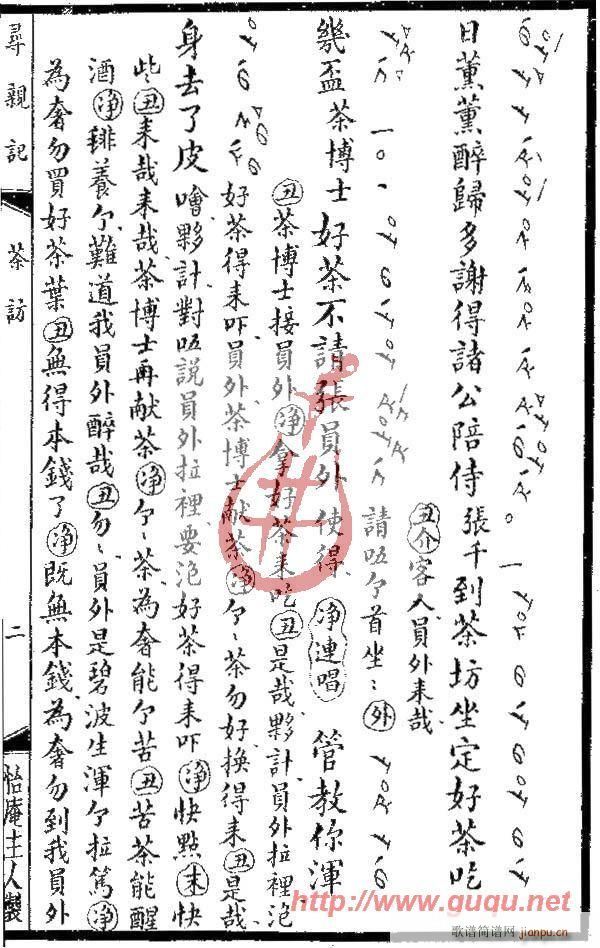 日薰薰醉歸多謝得諸公陪侍張千到茶坊坐定好茶吃
丑介客人員外来哉
請唔个首坐
外
幾盃茶博士好茶不請張員外使得
净連唱
管教你渾
丑茶博士接員外净拿好茶来吃丑是哉夥計員外拉裡泡
好茶得来吓員外茶博士献茶净个、茶勿好換得来丑是哉
身去了皮噲夥計對唔説員外拉裡要泡好茶得来吓净快點末快
些丑来哉来哉茶博士再献茶净个、茶為奢能个苦丑苦茶能醒
酒净養个難道我員外醉哉丑勿、員外是碧波生渾个拉篤净
為奢勿買好茶葉丑無得本錢了净既無本錢為奢勿到我員外
尋親記
茶訪
二
怡庵主人製
http://www.guqu.net
歌谱简谱网
jianpu.cn